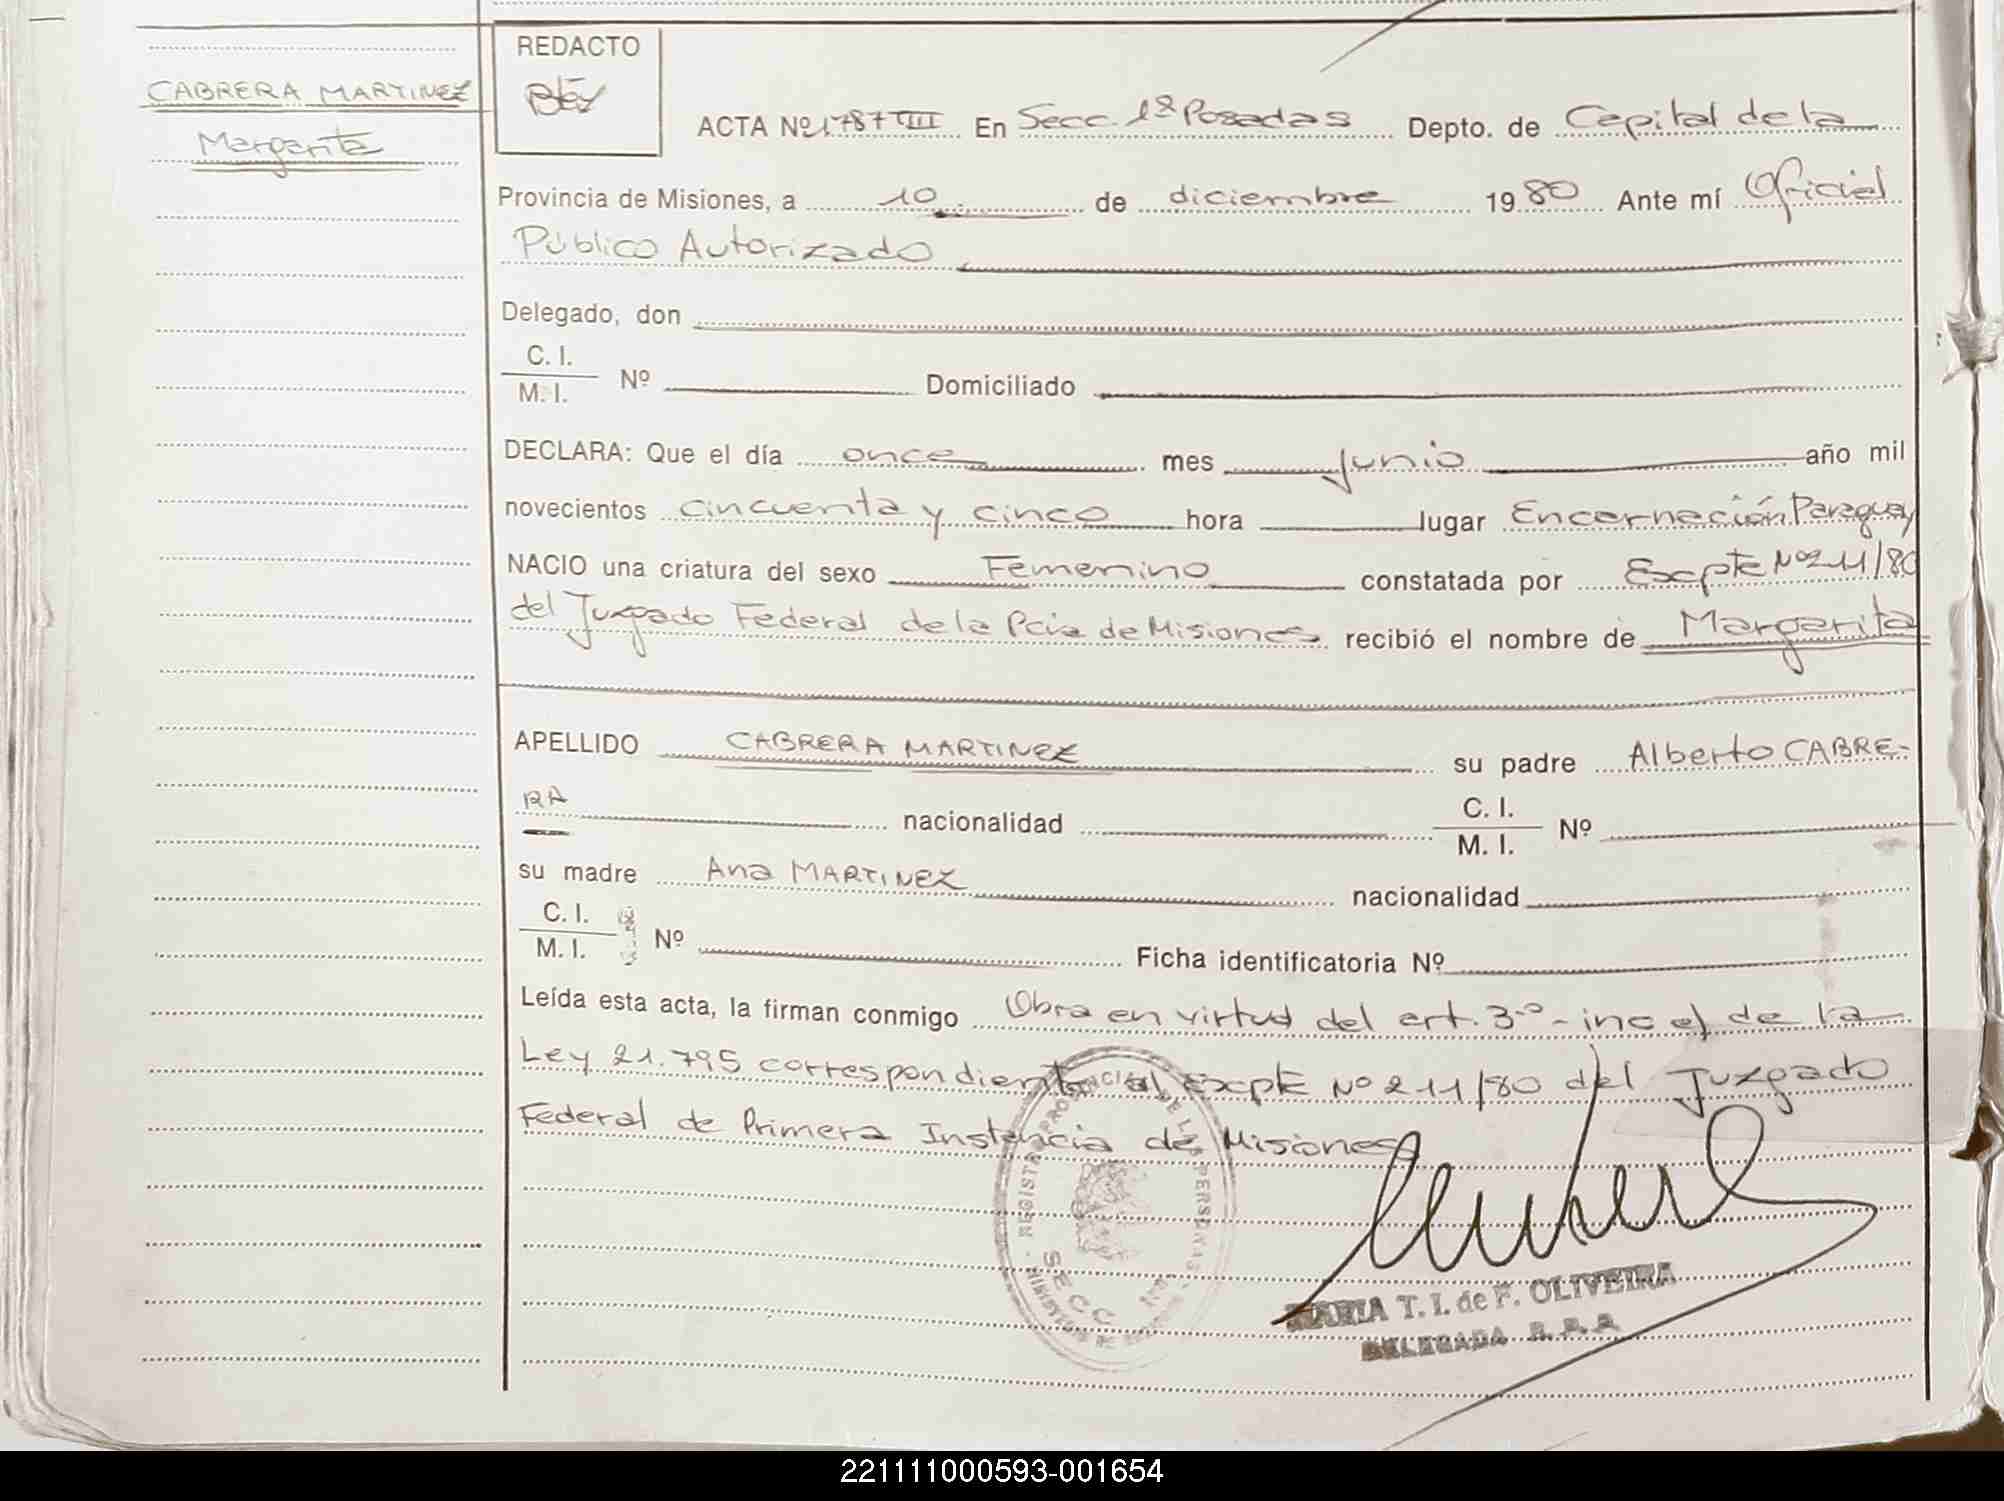 CABRERA MARTINEZ
Margarita
REDACTO
ACTA Nº 1787 TIII En Secc. 1ª Posadas Depto. de Capital de la
Provincia de Misiones, a 10 de diciembre 1980 Ante mí Oficial
Público Autorizado
Delegado, don
C. I.
M. I. Nº Domiciliado
DECLARA: Que el día once mes Junio año mil
novecientos cincuenta y cinco hora lugar Encarnación Paraguay
NACIO una criatura del sexo Femenino constatada por Excpte Nº 211/80
del Juzgado Federal de la Pcia de Misiones recibió el nombre de Margarita
APELLIDO CABRERA MARTINEZ su padre Alberto CABRE-
RA nacionalidad C. I. M. I. Nº
su madre Ana MARTINEZ nacionalidad
C. I.
M. I. Nº Ficha identificatoria Nº
Leída esta acta, la firman conmigo Obra en virtud del art. 3º - inc e) de la
Ley 21.795 correspondiente al Excpte Nº 211/80 del Juzgado
Federal de Primera Instancia de Misiones
REGISTRO PROVINCIAL DE LAS PERSONAS
SECC
MARIA T. I. de F. OLIVEIRA
DELEGADA R. P. P.
221111000593-001654